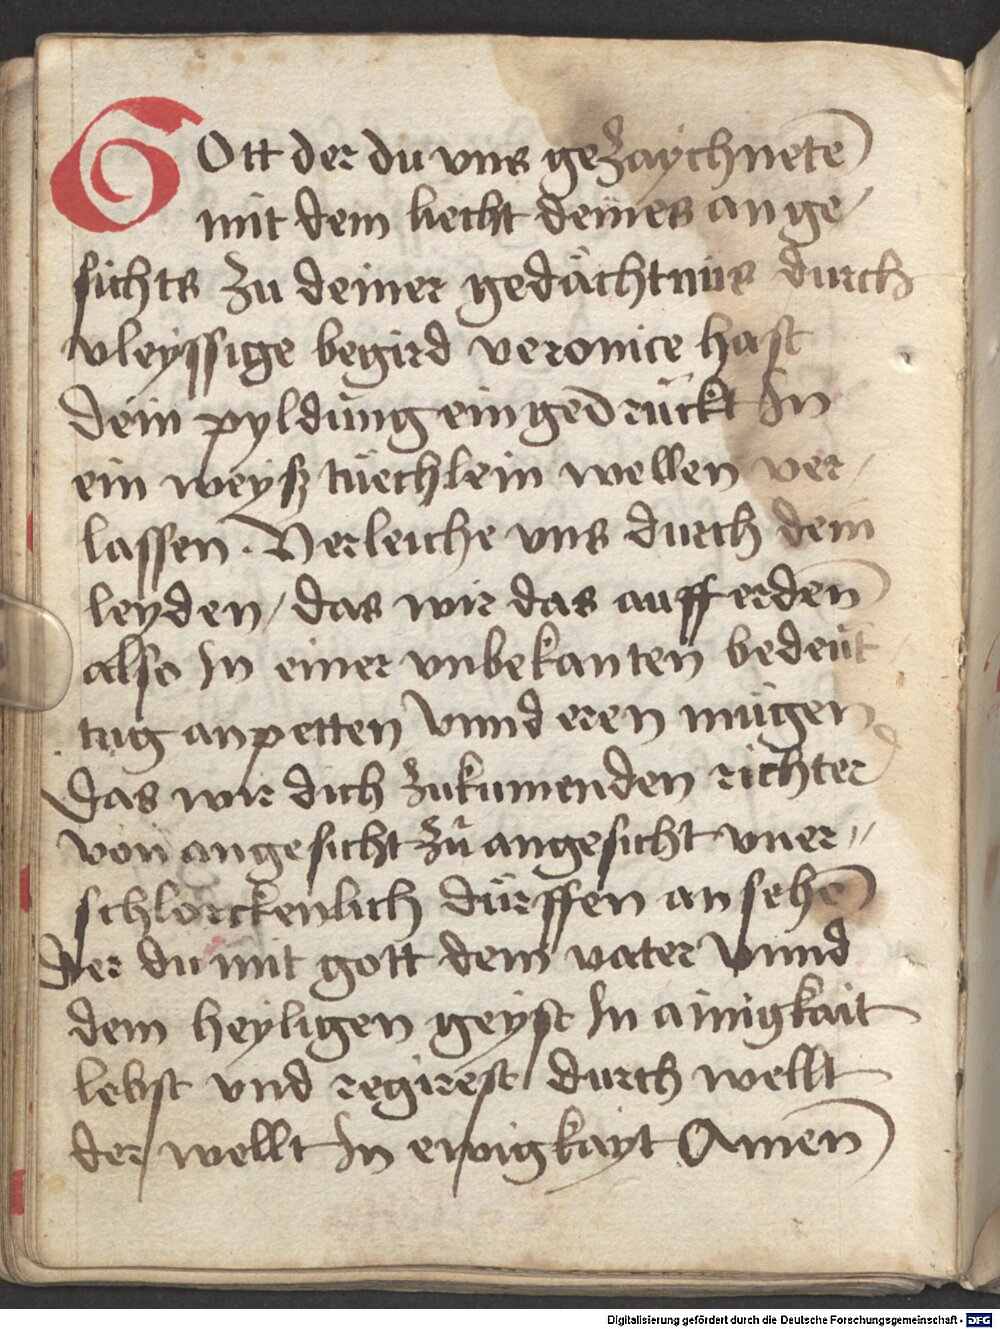 GOtt der du vns gezaychnete
mit dem liecht deines ange
sichts zu deiner gedächtnus durch
vleyssige begird veronice hast
dein pyldung eingedrückt In
ein weyß tüechlein wellen ver /
lassen . Verleiche vns durch dein
leyden / das wir das auff erden
also In einer vnbekanten bedeüt
tug anpetten Vnnd eren mügen
Das wir dich zukumenden richter
von angesicht zů angesicht vner //
schlockenlich dürffen an sehē
Der du mit gott dem vater Vnnd
dem heyligen geyst In ainigkait
lebst vnd regirest durch wellt
der wellt In ewigkayt Amen
Digitalisierung gefördert durch die Deutsche Forschungsgemeinschaft - DFG